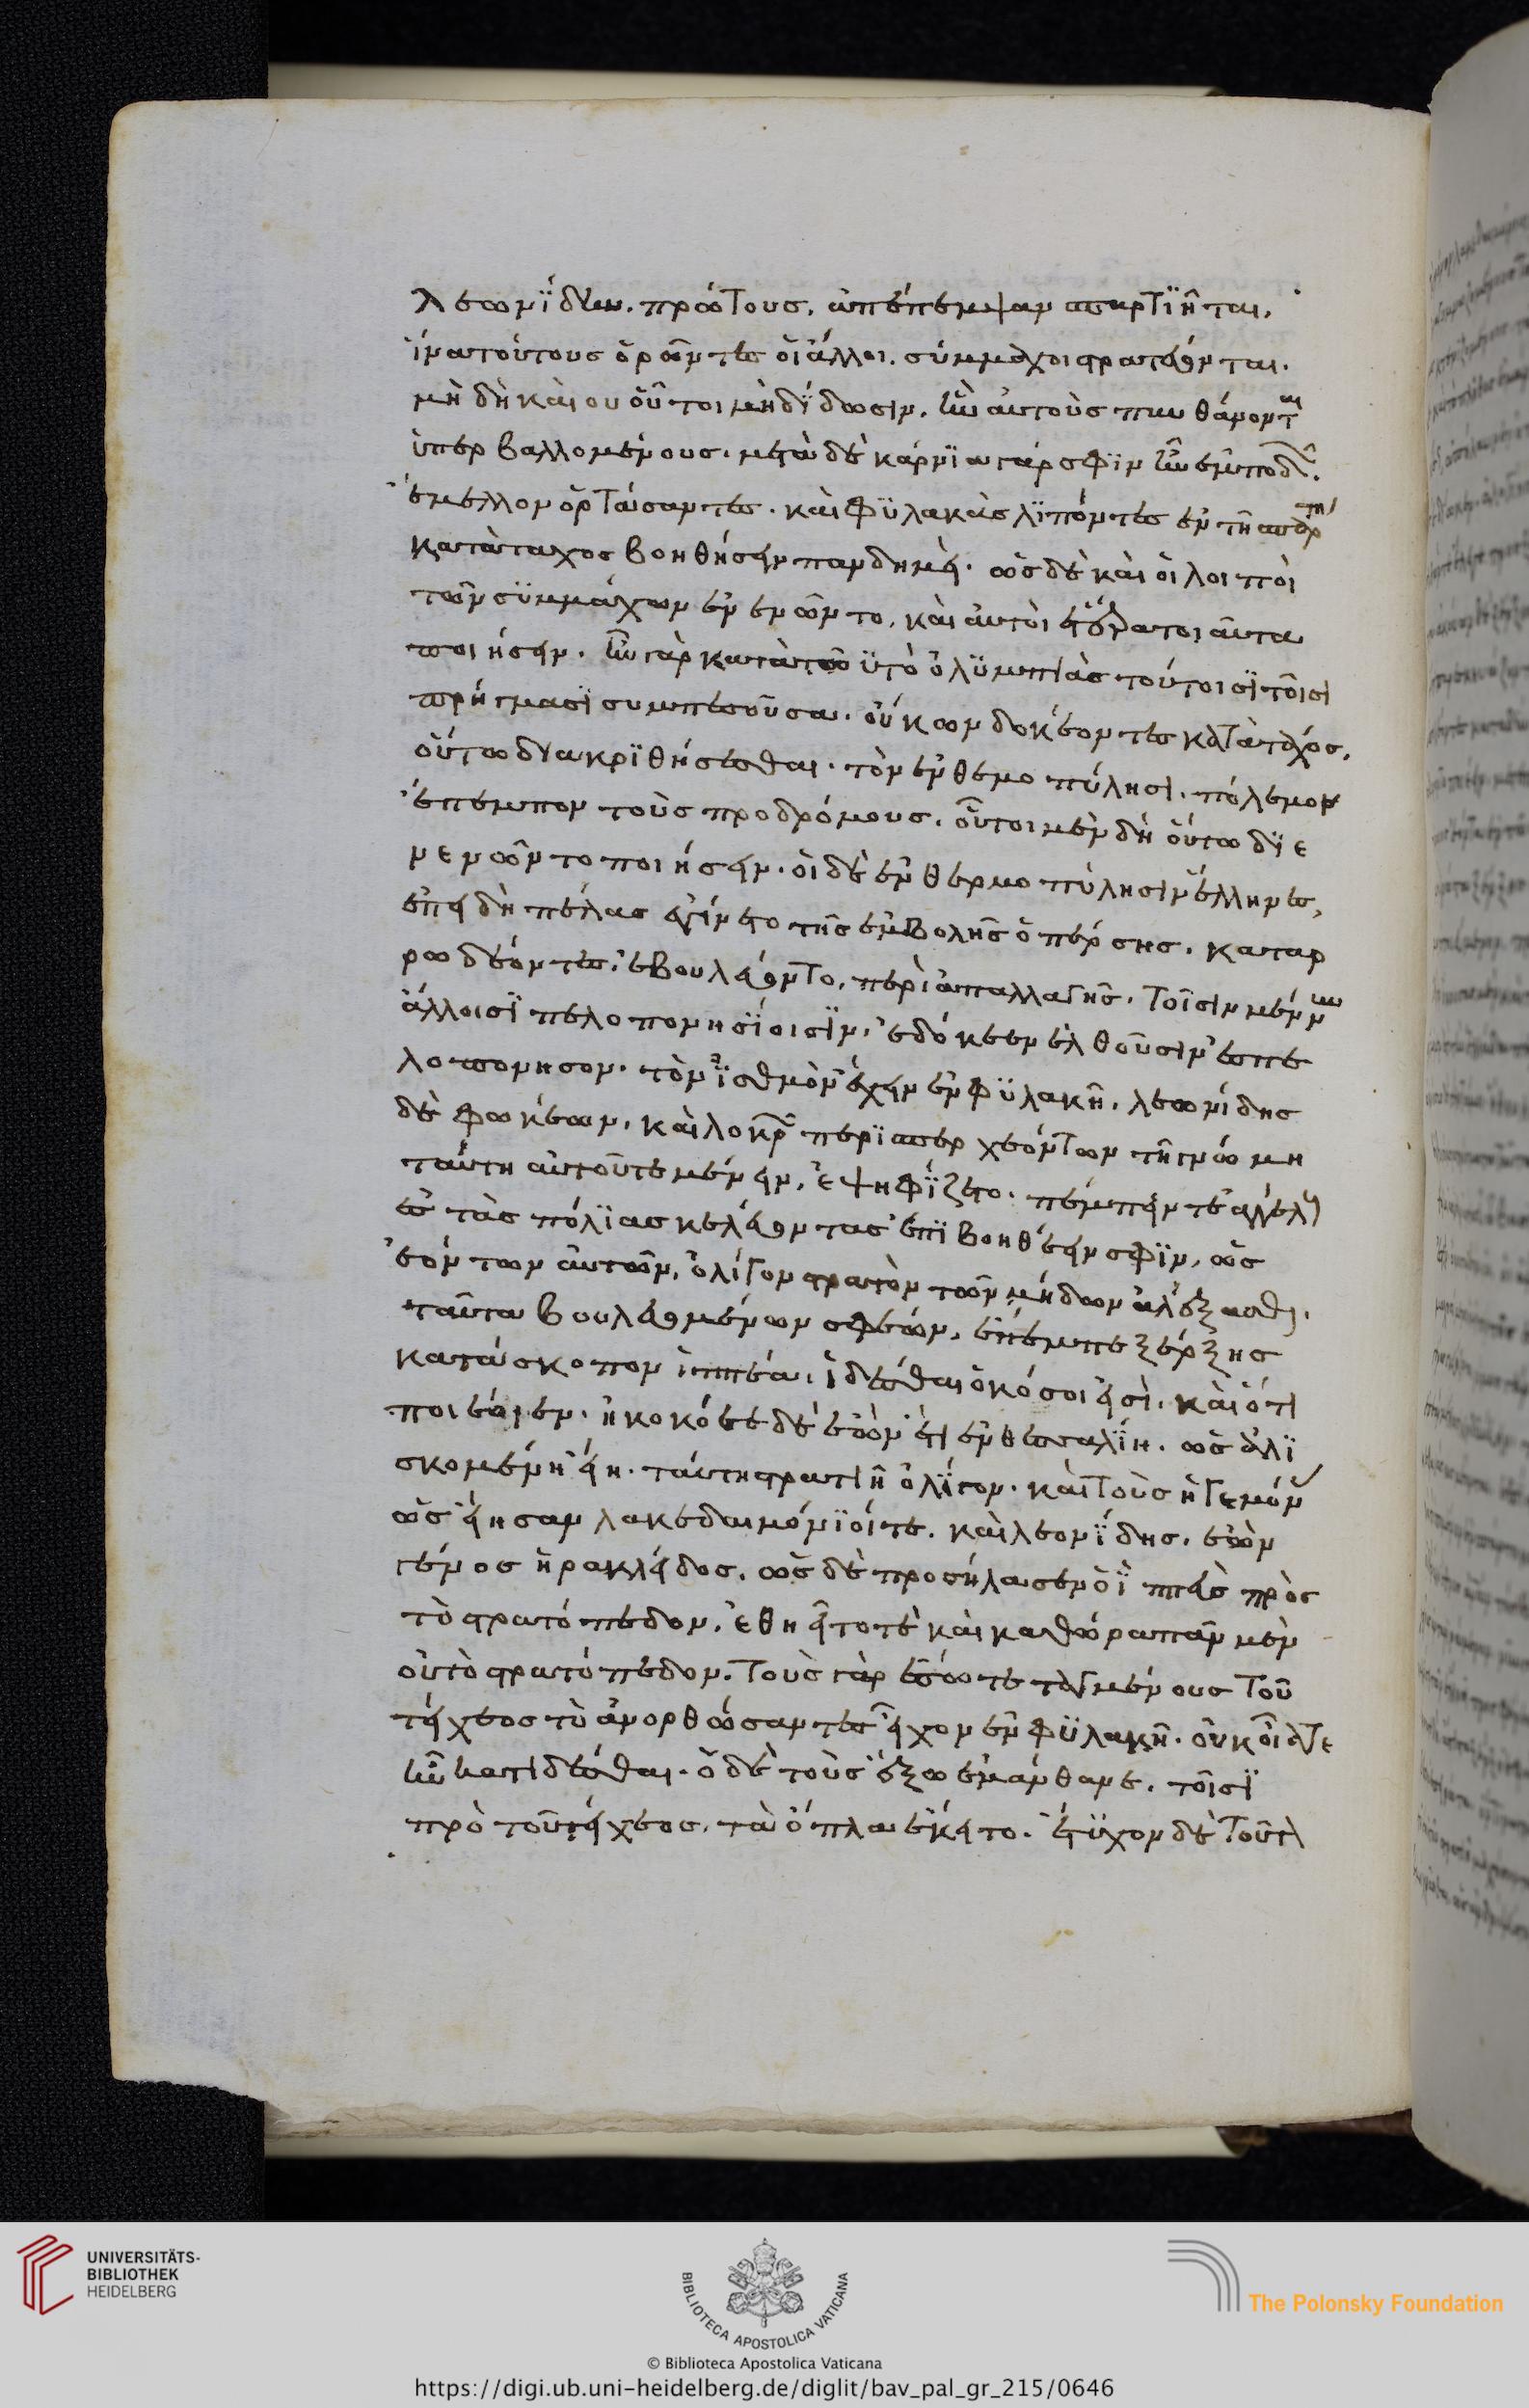 λεωνίδην. πρώτους. ἀπέπεμψαν σπαρτιῆται.
ἵνα τούτους ὁρῶντες οἱ ἄλλοι. σύμμαχοι στρατεύωνται.
μὴ δὲ καὶ ου οὗτοι μηδίδωσιν. ἢν αὐτοὺς πυνθάνωνται
ὑπερβαλλομένους. μετὰ δὲ κάρνια γάρ σφιν ἦν ἐμποδῶν.
ἔμελλον ὁρτάσαντες. καὶ φυλακὰς λιπόντες ἐν τῆ σπάρτη
κατὰ τάχος βοηθήσειν πανδημεί. ὡς δὲ καὶ οἱ λοιποὶ
τῶν συμμάχων ἐνενῶντο. καὶ αὐτοὶ ἕτερα τοιαῦτα
ποιήσειν. ἦν γὰρ κατὰ τωὐτὸ ὀλυμπιὰς τούτοισι τοῖσι
πρήγμασι συμπεσοῦσα. οὔκων δοκέοντες κατὰ τάχος.
οὕτω διακριθήσεσθαι. τὸν ἐν θεμοπύλησι. πόλεμον
ἔπεμπον τοὺς προδρόμους. οὗτοι μὲν δὴ οὕτω διε
νενῶντο ποιήσειν. οἱ δὲ ἐν θερμοπύλησιν ἕλληνες,
ἐπειδὴ πέλας ἐγίνετο τῆς ἐμβολῆς ὁ πέρσης. καταρ
ρωδέοντες. ἐβουλεύοντο. περὶ ἀπαλλαγῆς. τοῖσιν μέν νυν
ἄλλοισι πελοπονησίοισιν. ἐδόκεεν ἐλθοῦσιν ἐς πε
λοπονησον. τὸν ἰσθμὸν ἔχειν ἐν φυλακῆ. λεωνίδης
δὲ φωκέων. καὶ λοκρῶν περισπερχεόντων τῆ γνώμη
ταύτη αὐτοῦ τε μένειν. ἐψηφίζετο. πέμπειν τε ἀγγέλους
ἐς τὰς πόλιας κελεύοντας ἐπιβοηθέειν σφιν. ὡς
ἐόντων αὐτῶν. ὀλίγον στρατὸν τῶν μήδων ἀλέξασθαι.
ταῦτα βουλευομένων σφέων. ἔπεμπε ξέρξης
κατάσκοπον ἱππέα. ἰδέσθαι ὁκόσοι εἰσὶ. καὶ ὅτι
ποιέοιεν. ἠκοκόεε δὲ ἐὼν ἔτι ἐν θεσσαλίη. ὡς ἁλι
σκομένη εἴη. ταύτη στρατιῆ ὀλίγον. καὶ τοὺς ἡγεμόνας
ὡς εἴησαν λακεδαιμόνιοί τε. καὶ λεονίδης. ἐὼν
γένος ἡρακλείδος. ὡς δὲ προσήλασεν ὁ ἱππεὺς πρὸς
τὸ στρατόπεδον. ἐθηεῖτό τε καὶ καθώρα πᾶν μὲν
οὐ τὸ στρατόπεδον. τοὺς γὰρ ἔσω τεταγμένους τοῦ
τείχεος τὸ ἀνορθώσαντες εἶχον ἐν φυλακῆ. οὐκ οἷά τε
ἦν κατιδέσθαι. ὁ δὲ τοὺς ἔξω ἐμάνθανε. τοῖσι
πρὸ τοῦ τείχεος. τὰ ὅπλα ἐκέετο. ἔτυχον δὲ τοῦτον
UNIVERSITÄTS-
BIBLIOTHEK
HEIDELBERG
BIBLIOTECA APOSTOLICA VATICANA
The Polonsky Foundation
© Biblioteca Apostolica Vaticana
https://digi.ub.uni-heidelberg.de/diglit/bav_pal_gr_215/0646